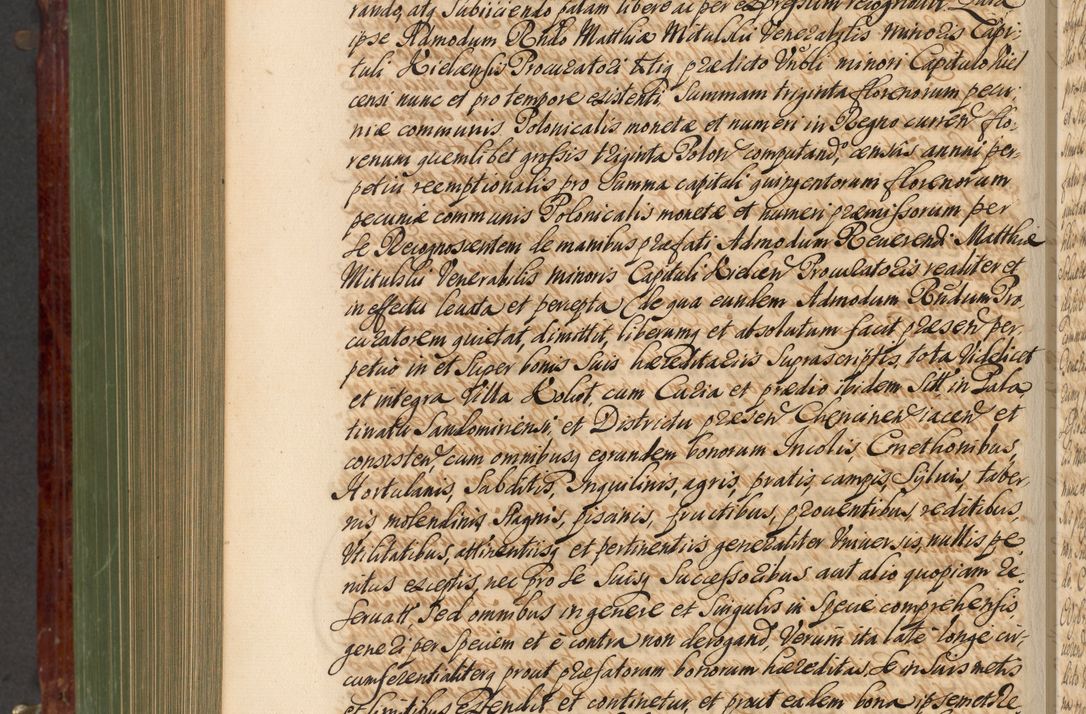 rando, atq Subijciendo palam libere ac per expressum recognovit. Quia
ipse Admodum Rndo Matthiæ Mitulski Venerabilis minoris Capi-
tuli Kielcensis Procuratori totiq prædicto Vnbli minori Capitulo Kiel
censi nunc et pro tempore existenti Summam triginta florenorum pecu-
niæ communis Polonicalis monetæ et numeri in Regno curren flo-
renum quemlibet grossis triginta Polon computando, census annui per-
petui reemptionalis pro Summa capitali quingentorum florenorum
pecuniæ communis Polonicalis monetæ et numeri præmissorum per
Se Recognoscentem de manibus præfati Admodum Reuerendi Matthiæ
Mitulski Venerabilis minoris Capituli Kielcen Procuratoris realiter et
in effectu leuata et percepta (de qua eundem Admodum Rndum Pro
curatorem quietat, dimittit, liberumq et absolutum facit præsen per-
petuo in et Super bonis Suis hæreditarijs Suprascriptis, tota videlicet
et integra Villa cum Curia et prædio ibidem Sitt, in Pala
tinatu Sandomiriensi, et Districtu præsen Chencinen iacen et
consisten cum omnibusq eorundem bonorum Incolis, Cmethonibus,
Hortulanis, Subditis, Inquilinis, agris, pratis, campis, Syluis, taber
nis molendinis Stagnis, piscinis, fructibus, prouentibus, reditibus,
Vtilitatibus, attinentiisq et pertinentiis generaliter Vniuersis, nullis pe
nitus exceptis, nec pro Se Suisq Successoribus aut alio quopiam re-
seruatt, Sed omnibus in genere et Singulis in Specie comprehensis
generi per Speciem et è contra non derogand, Verum ita latè longe cir-
cumferentialiterq prout præfatorum bonorum hæreditas, Se in Suis metis
et limitibus extendit et continetur, et prout eadem bona ipsemet Re